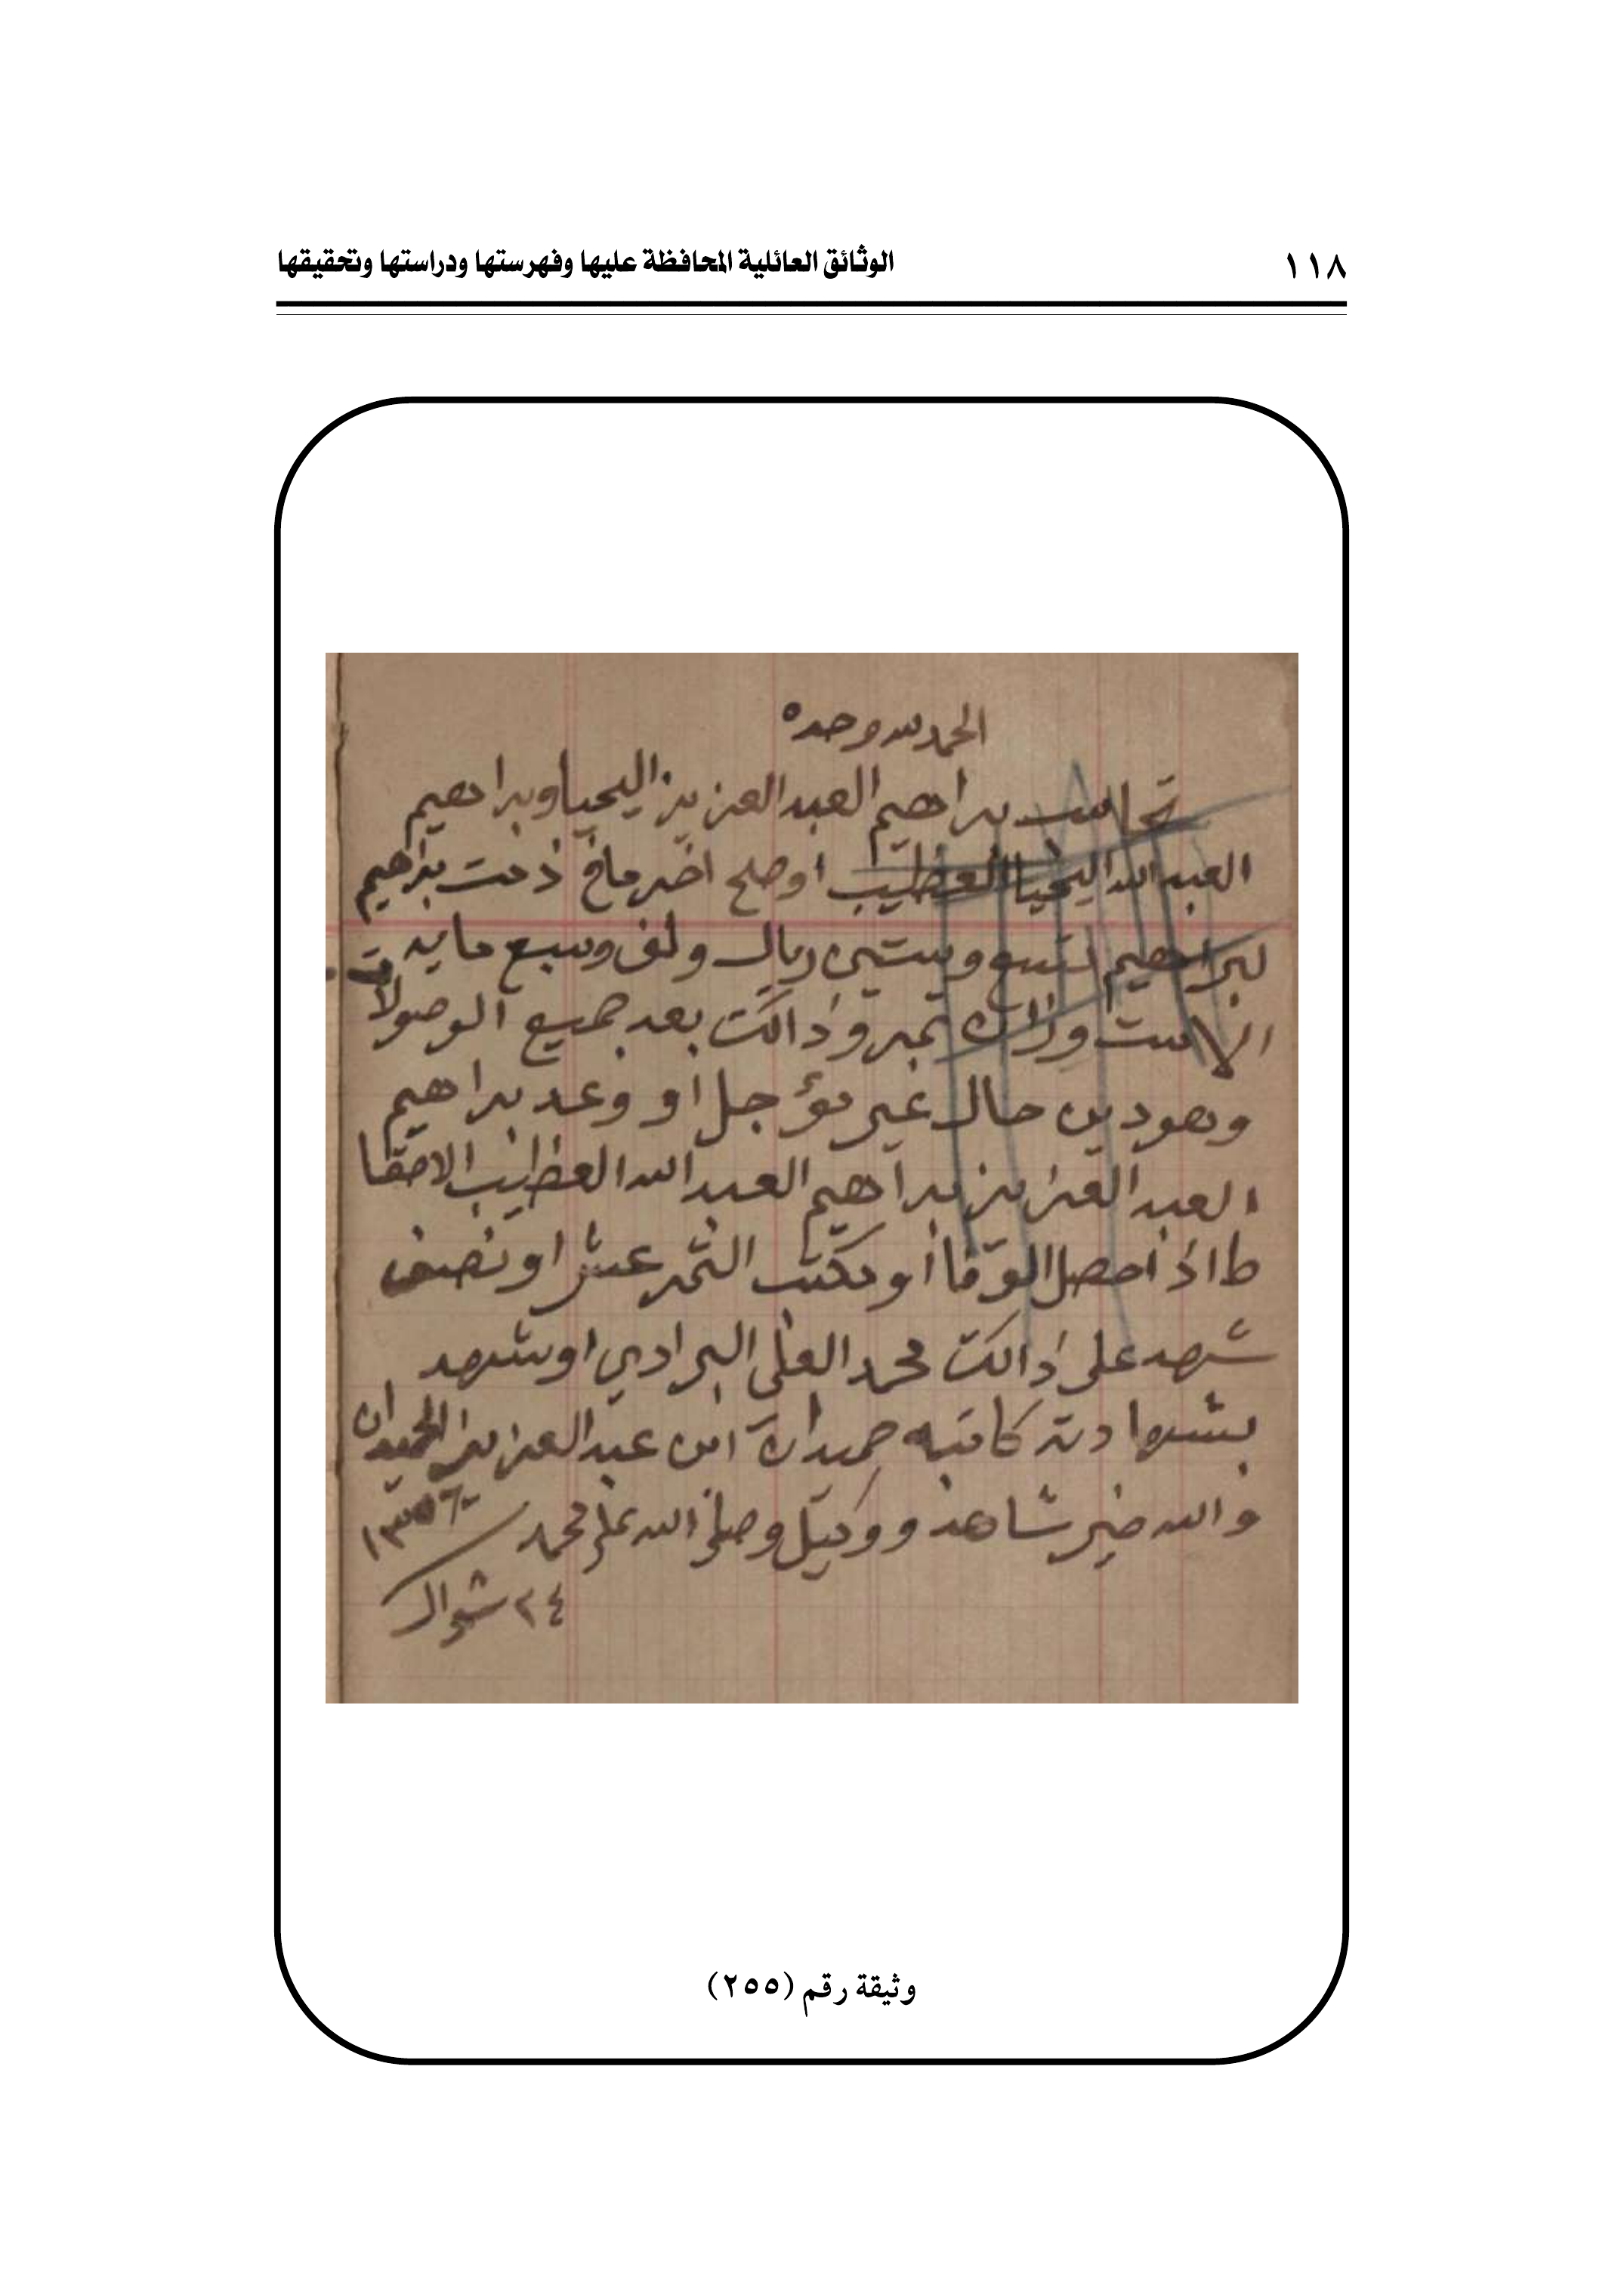 ١١٨
الوثائق العائلية المحافظة عليها وفهرستها ودراستها وتحقيقها
الحمد لله وحده
تحاسب براهيم العبدالعزيز اليحيا وبراهيم
العبدالله اليحيا العظيب اوصلح اخر مافي ذمت براهيم
لبراهيم تسع وستين ريال ولف وسبع مايه
الاست وزان تمر وذالك بعد جميع الوصولات
وهو دين حال غير مؤجل او وعد براهيم
العبدالعزيز براهيم العبدالله العظيب الاصقا
ط اذا حصل الوفا او مكتب التمر عشر او نصف
شهد على ذالك محمد العلي البرادي او شهد
بشهادته كاتبه حميدان ابن عبدالعزيز الحميدان
والله خير شاهد ووكيل وصلى الله على محمد
٢٤ شوال
وثيقة رقم (٢٥٥)